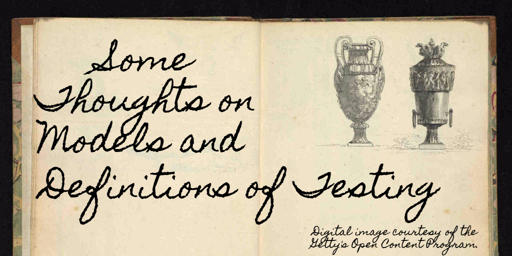 Some
Thoughts on
Models and
Definitions of Testing
Digital image courtesy of the
Getty's Open Content Program.